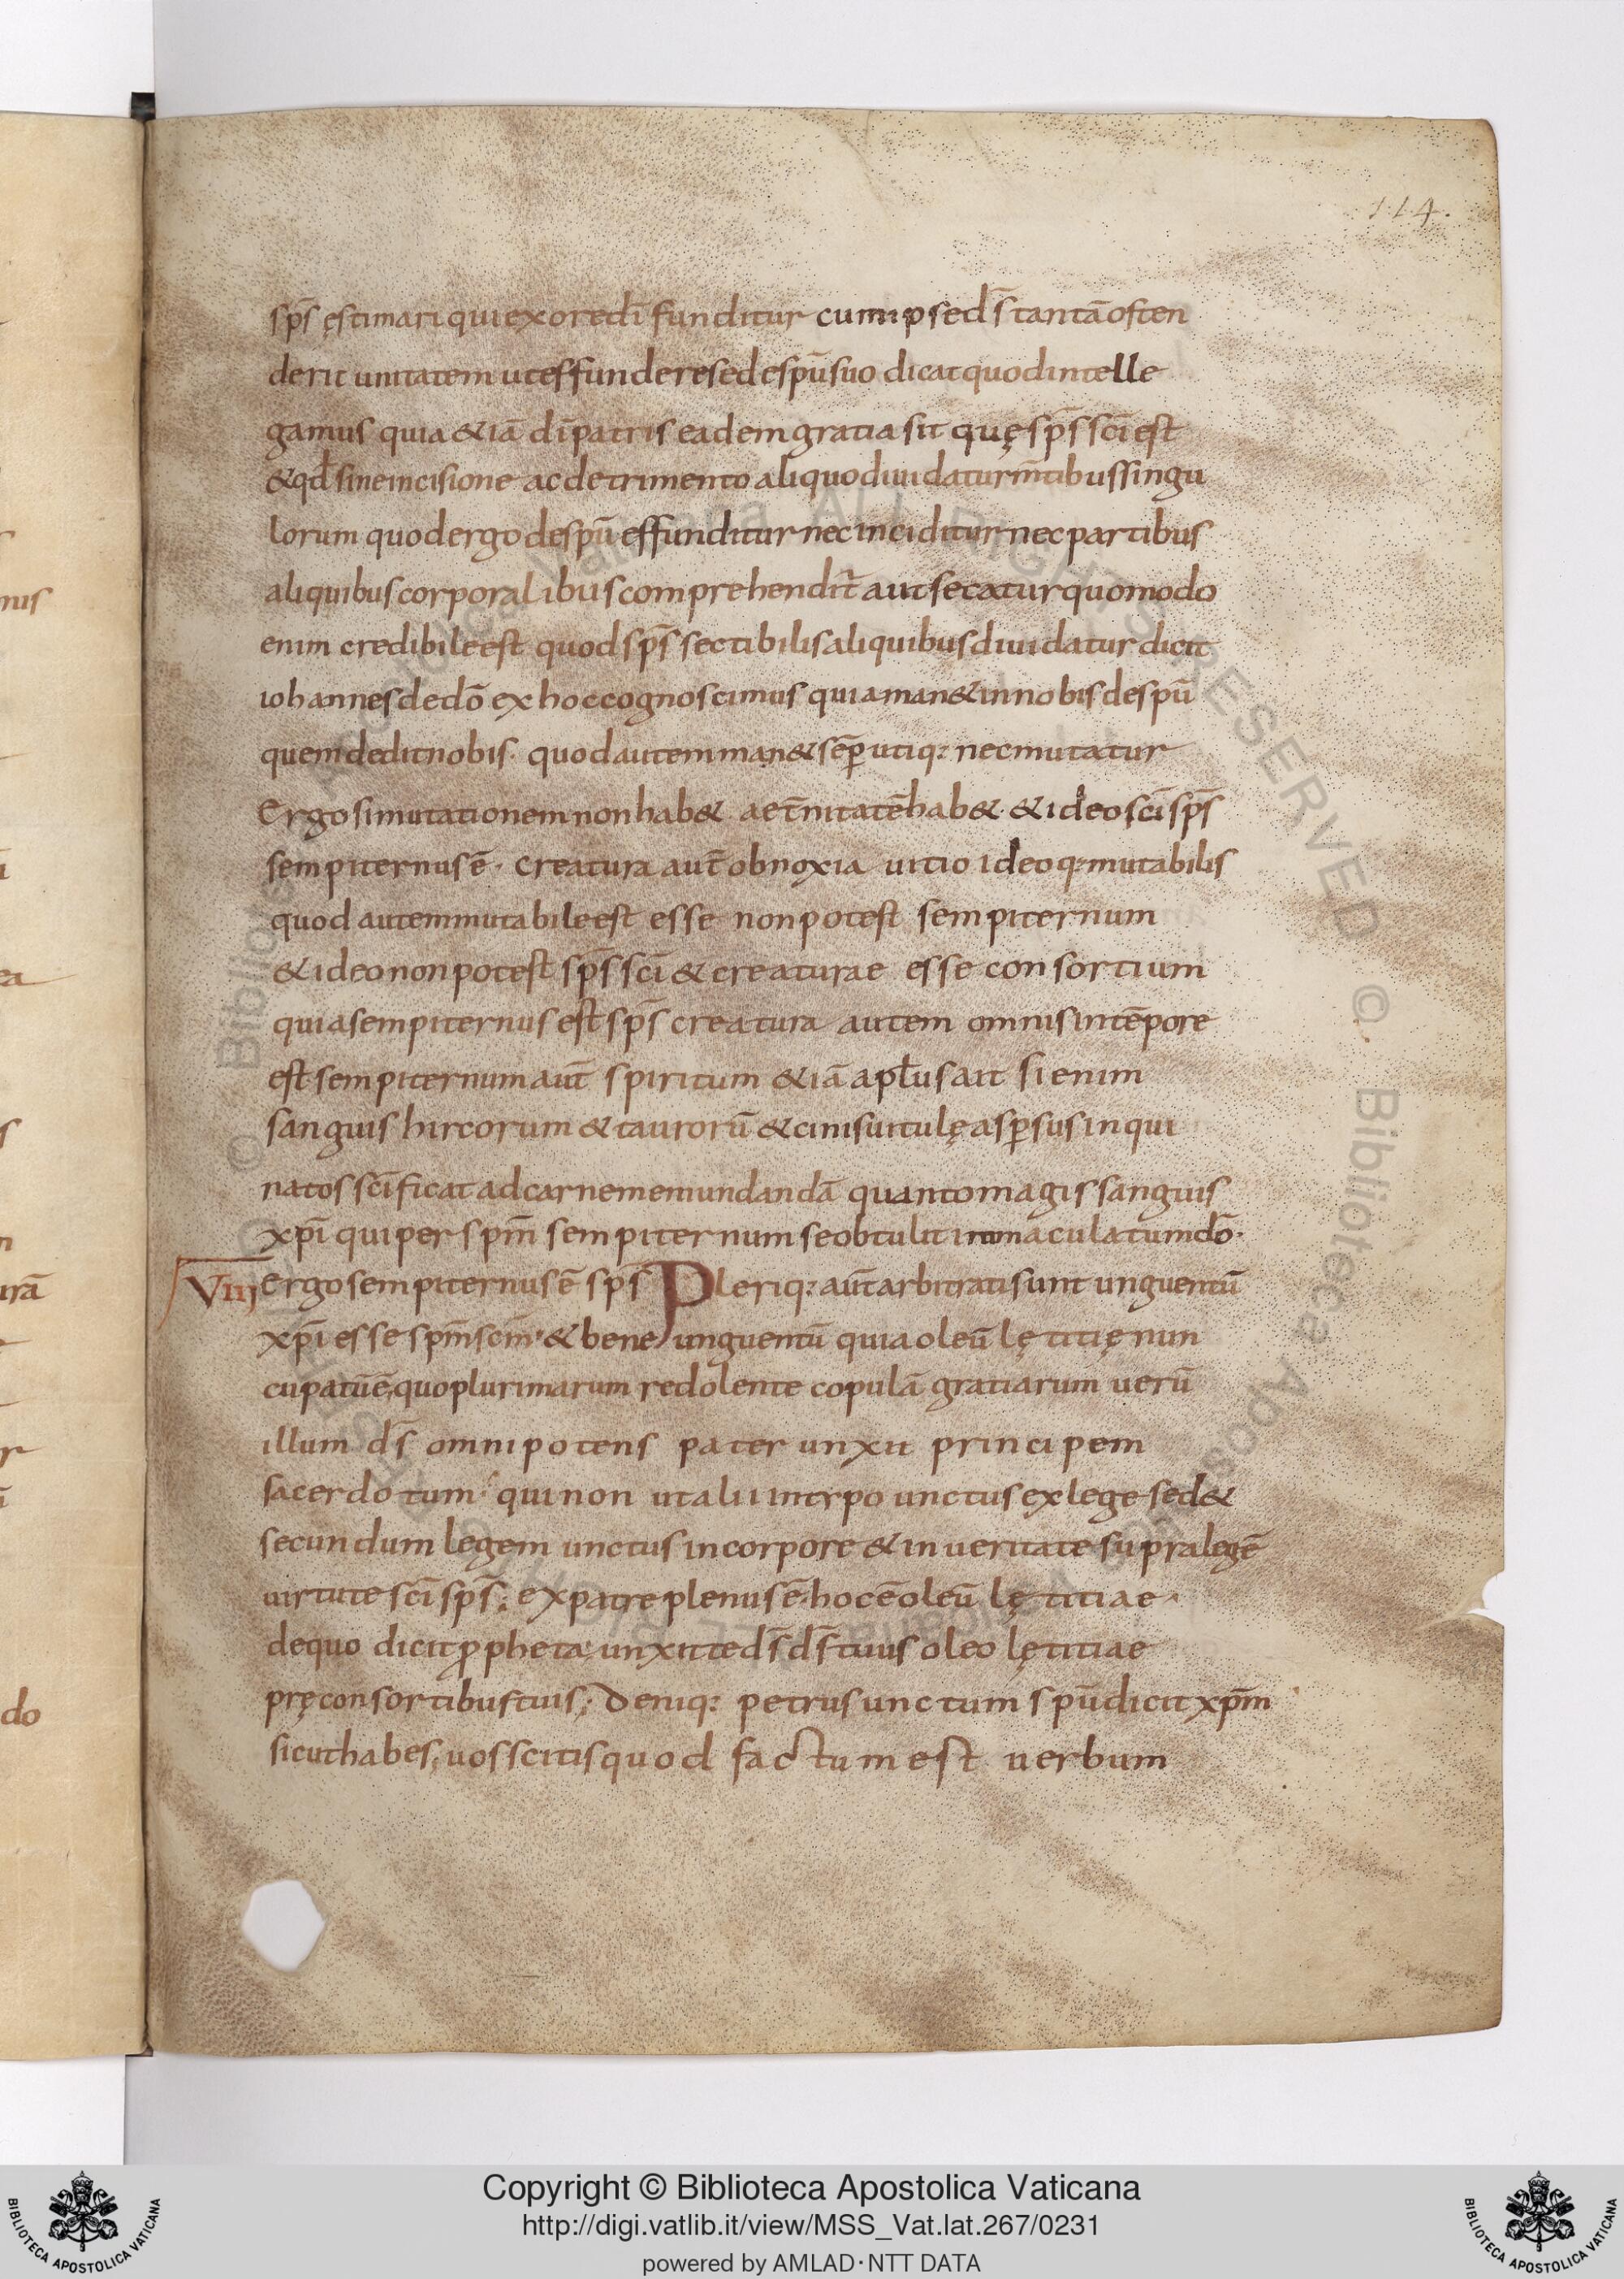 114.
sp̄s ęstimari qui ex ore dī funditur cum ipse d̄s tantā osten
derit unitatem ut effundere se de spū suo dicat quod intelle
gamus quia &iā dī patris eadem gratia sit quę sp̄s sc̄i est
& qđ sine incisione ac detrimento aliquo diuidatur m̄tibus singu
lorum quod ergo de spū effunditur nec inciditur nec partibus
aliquibus corporalibus comprehendit̄ aut secatur quomodo
enim credibile est quod sp̄s sectibilis aliquibus diuidatur dicit
iohannes de dō ex hoc cognoscimus quia man& in nobis de spū
quem dedit nobis· quod autem man& sēp utiq: nec mutatur
Ergo si mutationem non hab& aet̄nitatē hab& & ideo sc̄i sp̄s
sempiternus ē· creatura aut̄ obnoxia uitio ideoq: mutabilis
quod autem mutabile est esse non potest sempiternum
& ideo non potest sp̄s sc̄i & creaturae esse consortium
quia sempiternus est sp̄s creatura autem omnis in tēpore
est sempiternum aut̄ spiritum &iā apłus ait si enim
sanguis hircorum & taurorū & cinis uitulę aspsus inqui
natos sc̄ificat ad carnem emundandā quanto magis sanguis
xp̄i qui per spm̄ sempiternum se obtulit inmaculatum dō·
VIII Ergo sempiternus ē sp̄s Pleriq: aut̄ arbitrati sunt unguentū
xp̄i esse spm̄ sc̄m· & bene unguentū quia oleū lętitię nun
cupatū ē quo plurimarum redolente copulā gratiarum uerū
illum d̄s omnipotens pater unxit principem
sacerdotum· qui non ut alii in trpo unctus ex lege sed &
secundum legem unctus in corpore & in ueritate supra legē
uirtute sc̄i sp̄s; ex patre plenus ē· hoc ē oleū lętitiae·
de quo dicit ppheta; unxit te d̄s d̄s tuus oleo lętitiae
prę consortibus tuis; Deniq: petrus unctum spū dicit xp̄m
sicut habes; uos scitis quod factum est uerbum
nus
ea
n
urā
r
do
Copyright © Biblioteca Apostolica Vaticana
http://digi.vatlib.it/view/MSS_Vat.lat.267/0231
powered by AMLAD · NTT DATA
BIBLIOTECA APOSTOLICA VATICANA
BIBLIOTECA APOSTOLICA VATICANA